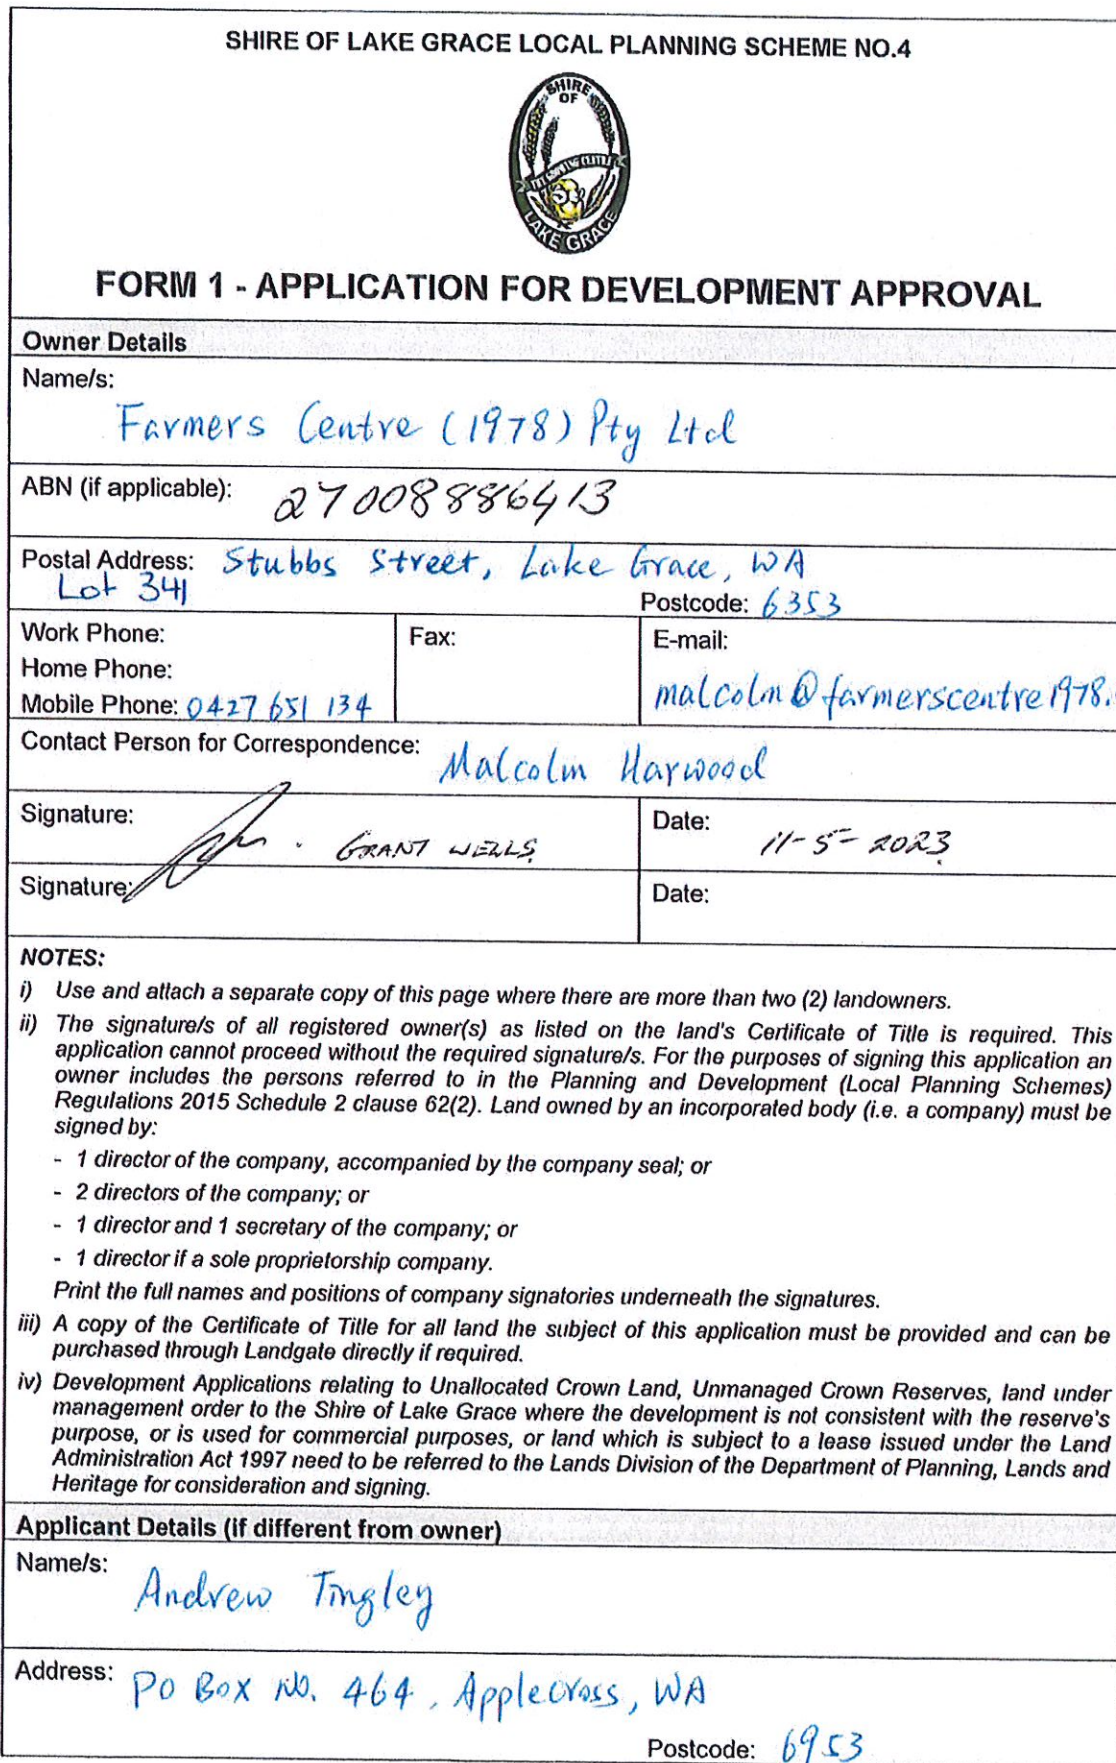 SHIRE OF LAKE GRACE LOCAL PLANNING SCHEME NO.4
SHIRE
OF
LAKE GRACE
FORM 1 - APPLICATION FOR DEVELOPMENT APPROVAL
Owner Details
Name/s:
Farmers Centre (1978) Pty Ltd
ABN (if applicable): 27008886413
Postal Address: Stubbs Street, Lake Grace, WA
Lot 341
Postcode: 6353
Work Phone:
Home Phone:
Mobile Phone: 0427 651 134
Fax:
E-mail:
malcolm@farmerscentre1978.
Contact Person for Correspondence: Malcolm Harwood
Signature: GRANT WELLS
Date: 11-5-2023
Signature:
Date:
NOTES:
i) Use and attach a separate copy of this page where there are more than two (2) landowners.
ii) The signature/s of all registered owner(s) as listed on the land's Certificate of Title is required. This
application cannot proceed without the required signature/s. For the purposes of signing this application an
owner includes the persons referred to in the Planning and Development (Local Planning Schemes)
Regulations 2015 Schedule 2 clause 62(2). Land owned by an incorporated body (i.e. a company) must be
signed by:
- 1 director of the company, accompanied by the company seal; or
- 2 directors of the company; or
- 1 director and 1 secretary of the company; or
- 1 director if a sole proprietorship company.
Print the full names and positions of company signatories underneath the signatures.
iii) A copy of the Certificate of Title for all land the subject of this application must be provided and can be
purchased through Landgate directly if required.
iv) Development Applications relating to Unallocated Crown Land, Unmanaged Crown Reserves, land under
management order to the Shire of Lake Grace where the development is not consistent with the reserve's
purpose, or is used for commercial purposes, or land which is subject to a lease issued under the Land
Administration Act 1997 need to be referred to the Lands Division of the Department of Planning, Lands and
Heritage for consideration and signing.
Applicant Details (if different from owner)
Name/s:
Andrew Tingley
Address: PO Box NO. 464, Applecross, WA
Postcode: 6953